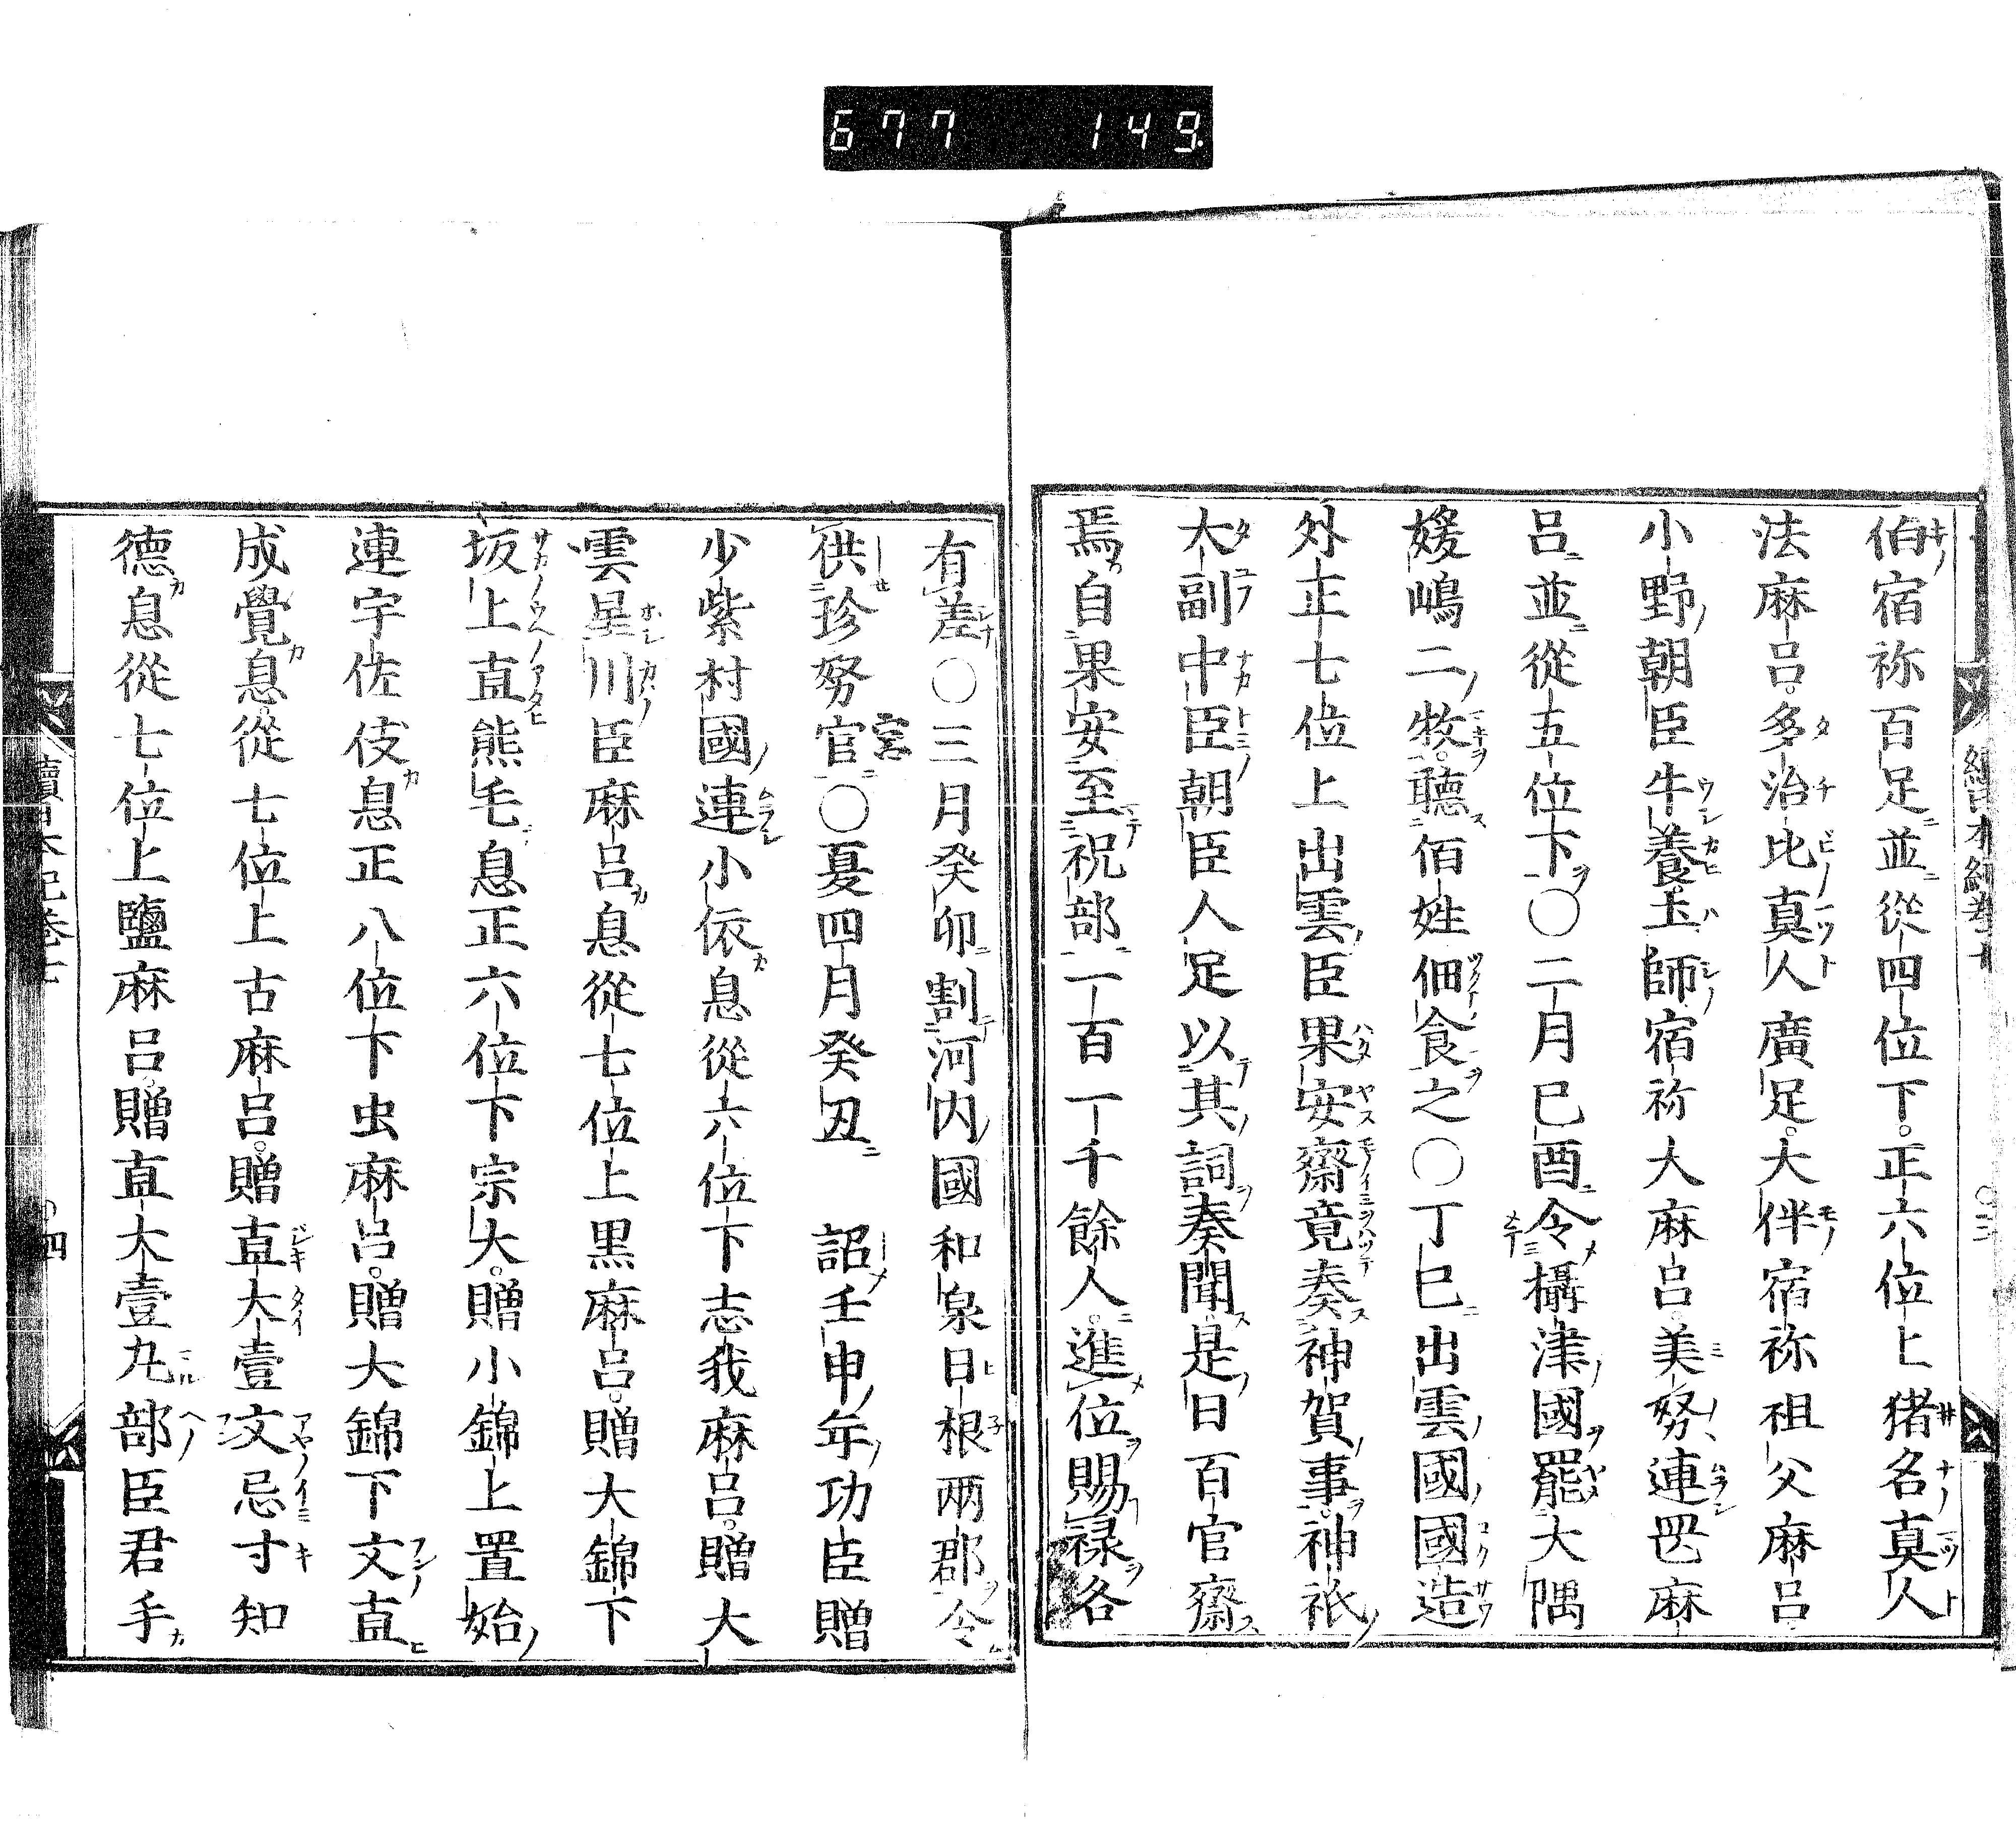 677 149
伯宿祢百足並從四位下。正六位上猪名真人
法麻呂。多治比真人廣足。大伴宿祢祖父麻呂。
小野朝臣牛養。土師宿祢大麻呂。美努連罡麻
呂並從五位下〇二月己酉令攝津國罷大隅
媛嶋二牧。聽佰姓佃食之〇丁巳出雲國國造
外正七位上出雲臣果安齋竟奏神賀事。神祇
大副中臣朝臣人足以其詞奏聞是日百官齋
焉自果安至祝部一百一十餘人。進位賜禄各
有差〇三月癸卯割河内國和泉日根兩郡令
供珍努官宮〇夏四月癸丑 詔壬申年功臣贈
少紫村國連小依息從六位下志我麻呂。贈大
雲星川臣麻呂息從七位上黒麻呂。贈大錦下
坂上直熊毛息正六位下宗大。贈小錦上置始
連宇佐伎息正八位下虫麻呂。贈大錦下文直
成覺息。從七位上古麻呂。贈直大壹文忌寸知
德息從七位上鹽麻呂。贈直大壹丸部臣君手
續日本紀卷七
四